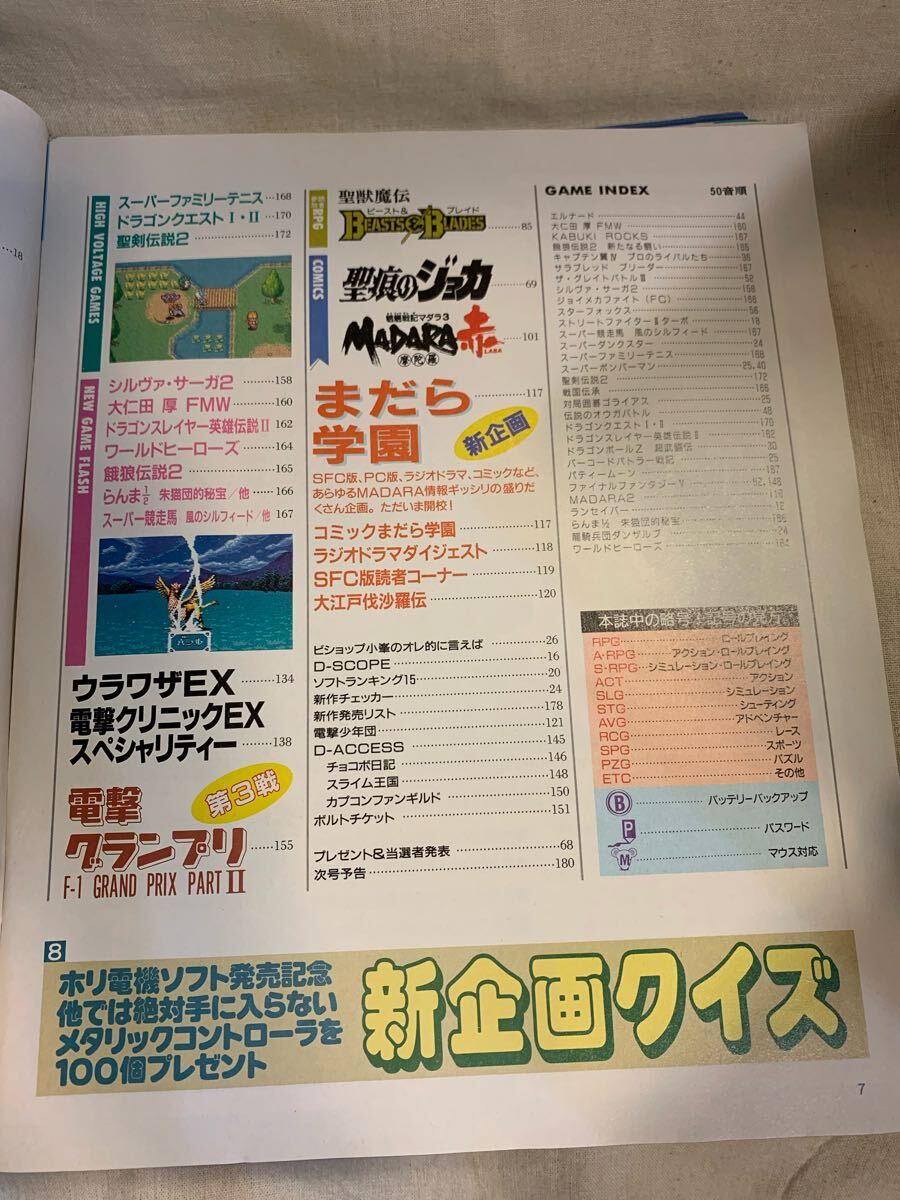 …18
HIGH VOLTAGE GAMES
スーパーファミリーテニス…168
ドラゴンクエストⅠ・Ⅱ…170
聖剣伝説2…172
NEW GAME FLASH
シルヴァ・サーガ2…158
大仁田 厚 FMW…160
ドラゴンスレイヤー英雄伝説Ⅱ 162
ワールドヒーローズ…164
餓狼伝説2…165
らんま½ 朱猫団的秘宝/他…166
スーパー競走馬 風のシルフィード/他 167
ウラワザEX…134
電撃クリニックEX
スペシャリティー…138
電撃
グランプリ…155
第3戦
F-1 GRAND PRIX PART Ⅱ
RPG
聖獣魔伝
ビースト& ブレイド
BEASTS & BLADES…85
COMICS
聖痕のジョカ…69
魍魎戦記マダラ3
MADARA赤…101
摩陀羅
LASA
まだら
学園…117
新企画
SFC版、PC版、ラジオドラマ、コミックなど、
あらゆるMADARA情報ギッシリの盛りだ
くさん企画。ただいま開校!
コミックまだら学園…117
ラジオドラマダイジェスト…118
SFC版読者コーナー…119
大江戸伐沙羅伝…120
ビショップ小峯のオレ的に言えば…26
D-SCOPE…16
ソフトランキング15…20
新作チェッカー…24
新作発売リスト…178
電撃少年団…121
D-ACCESS…145
チョコボ日記…146
スライム王国…148
カプコンファンギルド…150
ボルトチケット…151
プレゼント&当選者発表…68
次号予告…180
GAME INDEX 50音順
エルナード…44
大仁田 厚 FMW…160
KABUKI ROCKS…167
餓狼伝説2 新たなる闘い…165
キャプテン翼Ⅳ プロのライバルたち…36
サラブレッド ブリーダー…167
ザ・グレイトバトルⅢ…52
シルヴァ・サーガ2…158
ジョイメカファイト(FC)…166
スターフォックス…56
ストリートファイターⅡターボ…18
スーパー競走馬 風のシルフィード…167
スーパーダンクスター…24
スーパーファミリーテニス…168
スーパーボンバーマン…25,40
聖剣伝説2…172
戦国伝承…166
対局囲碁ゴライアス…25
伝説のオウガバトル…48
ドラゴンクエストⅠ・Ⅱ…170
ドラゴンスレイヤー英雄伝説Ⅱ…162
ドラゴンボールZ 超武闘伝…30
バーコードバトラー戦記…25
パティームーン…167
ファイナルファンタジーⅤ…62,148
MADARA2…118
ランセイバー…12
らんま½ 朱猫団的秘宝…166
龍騎兵団ダンザルブ…24
ワールドヒーローズ…164
本誌中の略号・記号の見方
RPG…ロールプレイング
A・RPG…アクション・ロールプレイング
S・RPG…シミュレーション・ロールプレイング
ACT…アクション
SLG…シミュレーション
STG…シューティング
AVG…アドベンチャー
RCG…レース
SPG…スポーツ
PZG…パズル
ETC…その他
B…バッテリーバックアップ
P…パスワード
M…マウス対応
8
ホリ電機ソフト発売記念
他では絶対手に入らない
メタリックコントローラを
100個プレゼント
新企画クイズ
7